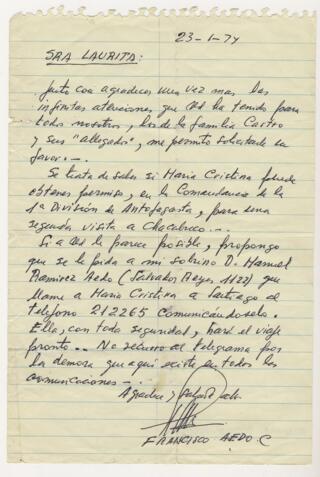 23-1-74
SRA LAURITA:
Junto con agradecer una vez mas las
infinitas atenciones que Ud ha tenido para
todos nosotros, los de la familia Castro
y sus "allegados", me permito solicitarle un
favor.-.
Se trata de saber si Maria Cristina puede
obtener permiso, en la Comandancia de la
1ª División de Antofagasta, para una
segunda visita a Chacabuco.-.
Si a Ud le parece posible, propongo
que se le pida a mi sobrino D. Manuel
Ramirez Aedo (Salvador Reyes 1122) que
llame a Maria Cristina a Santiago al
teléfono 212265 comunicándoselo.
Ella, con toda seguridad, hará el viaje
pronto.-. No recurro al telegrama por
la demora que aquí existe en todas las
comunicaciones-.
Agradece y saluda atte
FRANCISCO AEDO C